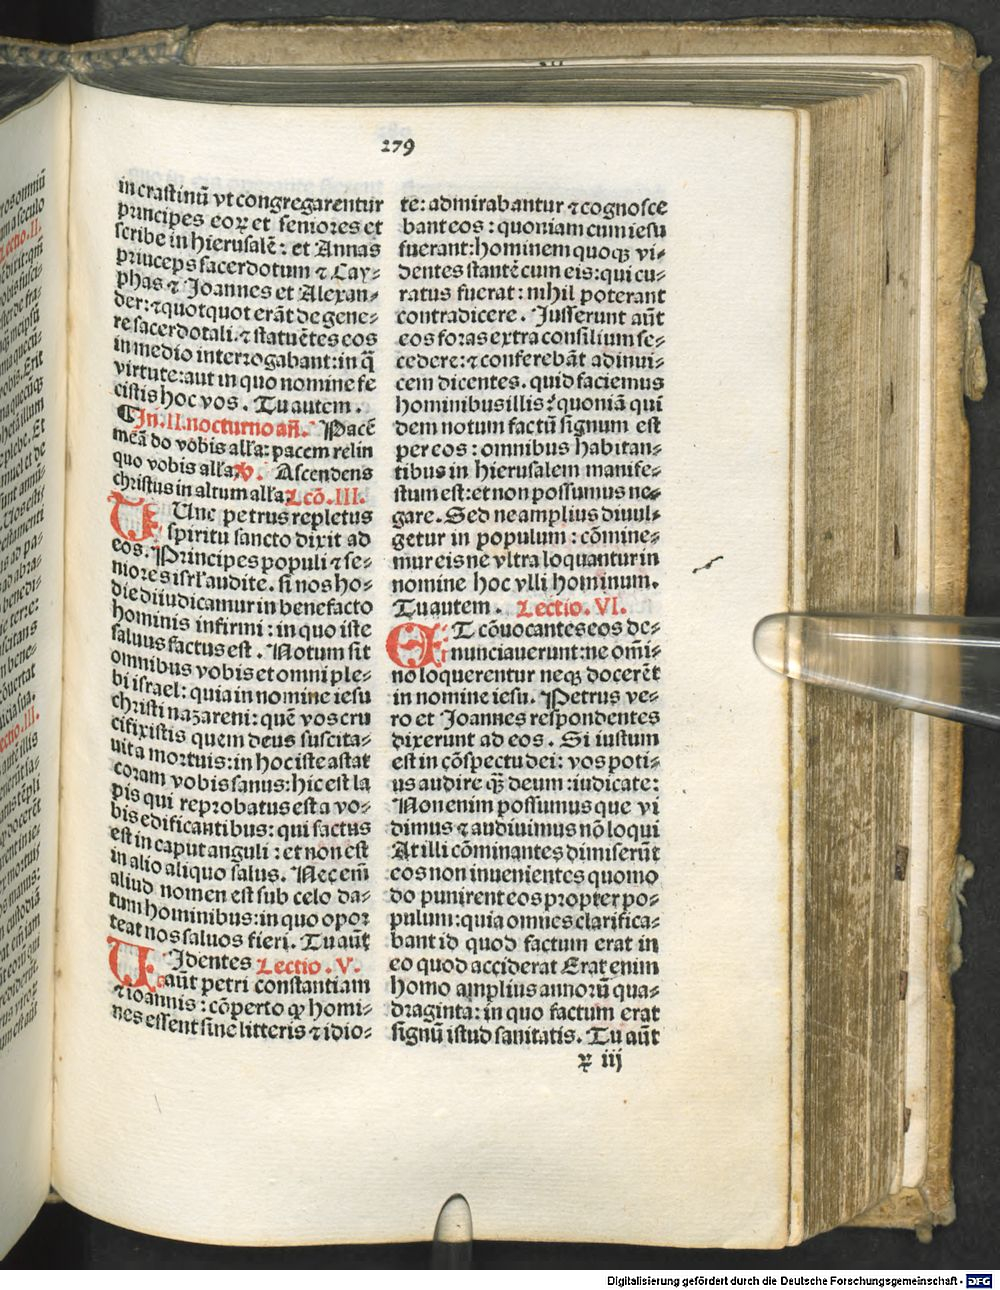 279
in crastinū vt congregarentur
principes eoꝝ et seniores et
scribe in hierusalē: et Annas
princeps sacerdotum ⁊ Cay⸗
phas ⁊ Joannes et Alexan⸗
der: ⁊ quotquot erāt de gene⸗
re sacerdotali. ⁊ statuētes eos
in medio interrogabant: in q̄
virtute: aut in quo nomine fe
cistis hoc vos. Tu autem.
¶ In .II. nocturno añ. Pacē
meā do vobis alľa: pacem relin
quo vobis alľa. ℣. Ascendens
christus in altum alľa. Lcō. III.
TUnc petrus repletus
spiritu sancto dixit ad
eos. Principes populi ⁊ se⸗
niores isrľ audite. si nos ho⸗
die diiudicamur in benefacto
hominis infirmi: in quo iste
saluus factus est. Notum sit
omnibus vobis et omni ple⸗
bi israel: quia in nomine iesu
christi nazareni: quē vos cru
cifixistis quem deus suscita⸗
uit a mortuis: in hoc iste astat
coram vobis sanus: hic est la
pis qui reprobatus est a vo⸗
bis edificantibus: qui factus
est in caput anguli: et non est
in alio aliquo salus. Nec em̄
aliud nomen est sub celo da⸗
tum hominibus: in quo opor
teat nos saluos fieri. Tu aūt
UJdentes Lectio. V.
aūt petri constantiam
⁊ ioannis: cōperto ꝙ homi⸗
nes essent sine litteris ⁊ idio⸗
te: admirabantur ⁊ cognosce
bant eos: quoniam cum iesu
fuerant: hominem quoqꝫ vi⸗
dentes stantē cum eis: qui cu⸗
ratus fuerat: nihil poterant
contradicere. Jusserunt aūt
eos foras extra consilium se⸗
cedere: ⁊ conferebāt adinui⸗
cem dicentes. quid faciemus
hominibus illis? quoniā qui
dem notum factū signum est
per eos: omnibus habitan⸗
tibus in hierusalem manife⸗
stum est: et non possumus ne⸗
gare. Sed ne amplius diuul⸗
getur in populum: cōmine⸗
mur eis ne vltra loquantur in
nomine hoc vlli hominum.
Tu autem. Lectio. VI.
ET cōuocantes eos de⸗
nunciauerunt: ne om̄i⸗
no loquerentur neqꝫ docerēt
in nomine iesu. Petrus ve⸗
ro et Joannes respondentes
dixerunt ad eos. Si iustum
est in cōspectu dei: vos poti⸗
us audire q̄ꝫ deum: iudicate:
Non enim possumus que vi
dimus ⁊ audiuimus nō loqui
At illi cōminantes dimiserūt
eos non inuenientes quomo
do punirent eos propter po⸗
pulum: quia omnes clarifica⸗
bant id quod factum erat in
eo quod acciderat Erat enim
homo amplius annorū qua⸗
draginta: in quo factum erat
signū istud sanitatis. Tu aūt
ꝟ iij
Digitalisierung gefördert durch die Deutsche Forschungsgemeinschaft - DFG